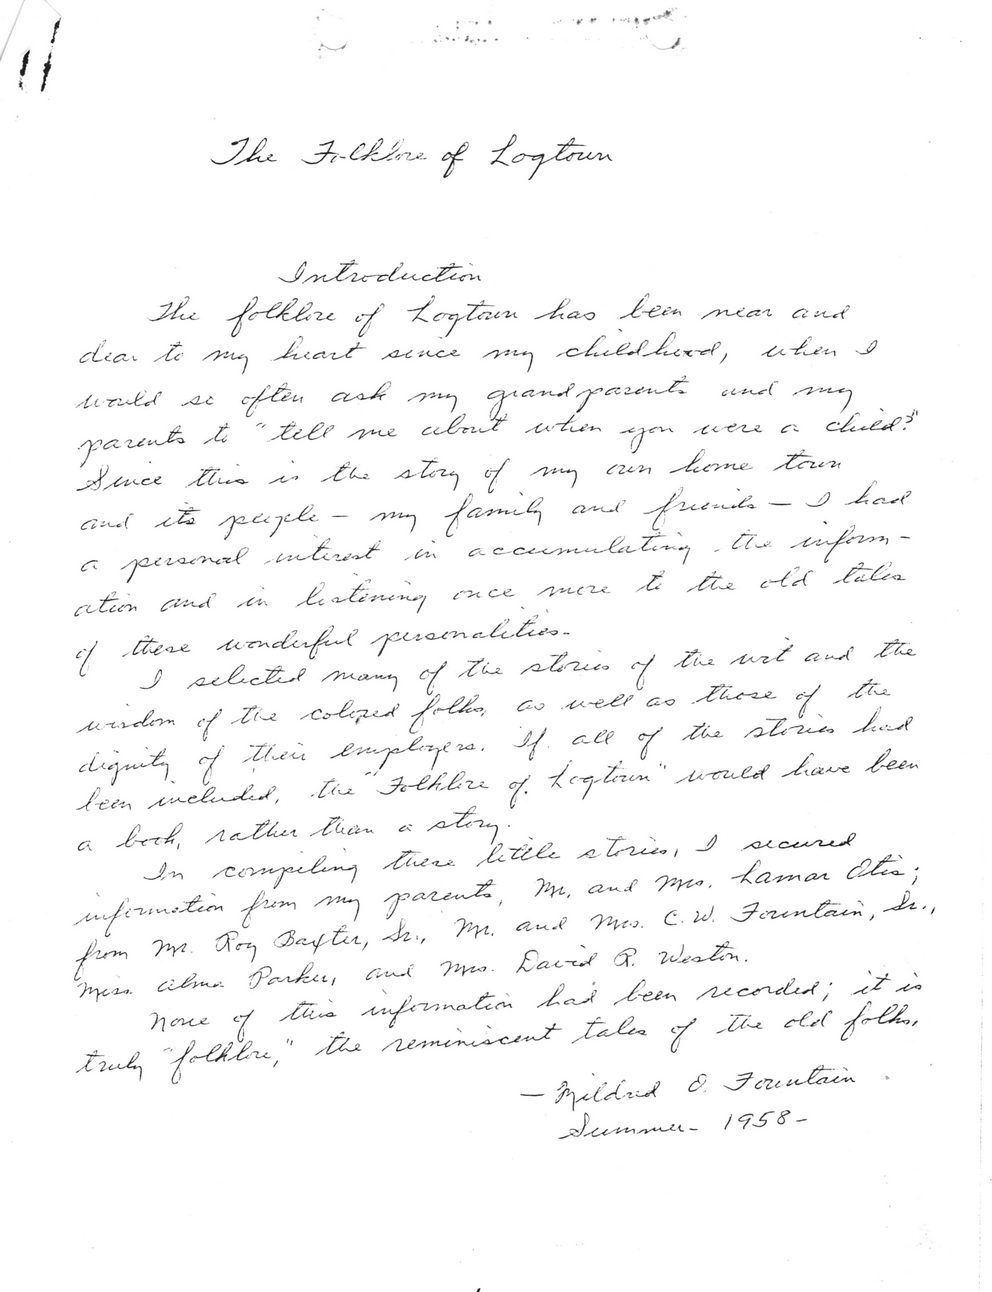 The Folklore of Logtown
Introduction
The folklore of Logtown has been near and
dear to my heart since my childhood, when I
would so often ask my grandparents and my
parents to "tell me about when you were a child?"
Since this is the story of my own home town
and its people - my family and friends - I had
a personal interest in accumulating the inform-
ation and in listening once more to the old tales
of these wonderful personalities.
I selected many of the stories of the wit and the
wisdom of the colored folks, as well as those of the
dignity of their employers. If all of the stories had
been included, the "Folklore of Logtown" would have been
a book, rather than a story.
In compiling these little stories, I secured
information from my parents, Mr. and Mrs. Lamar Otis;
from Mr. Roy Baxter, Sr., Mr. and Mrs. C. W. Fountain, Sr.,
Miss Alma Parker, and Mrs. David R. Weston.
None of this information had been recorded; it is
truly "folklore," the reminiscent tales of the old folks.
- Mildred O. Fountain
Summer - 1958 -